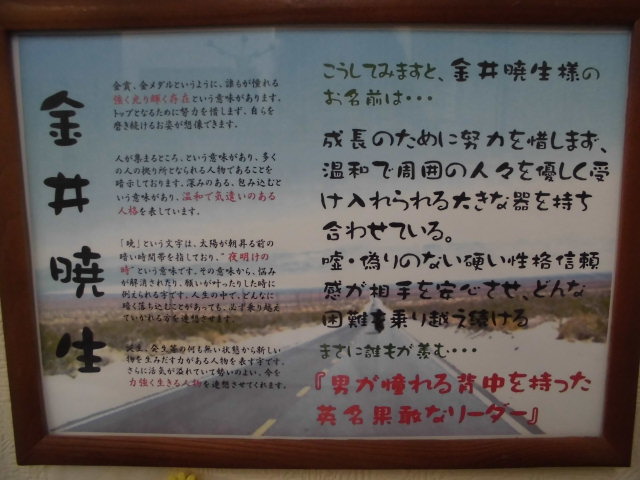 金井暁生
金賞、金メダルというように、誰もが憧れる
強く光り輝く存在という意味があります。
トップとなるために努力を惜しまず、自らを
磨き続けるお姿が想像できます。
人が集まるところ、という意味があり、多く
の人の拠り所となられる人物であることを
暗示しております。深みのある、包み込むと
いう意味があり、温和で気遣いのある
人格を表しています。
「暁」という文字は、太陽が朝昇る前の
暗い時間帯を指しており、"夜明けの
時"という意味です。その意味から、悩み
が解消されたり、願いが叶ったりした時に
例えられる字です。人生の中で、どんなに
暗く落ち込むことがあっても、必ず乗り越え
ていかれる方を連想させます。
誕生、発生等の何も無い状態から新しい
物を生みだす力がある人物を表す字です。
さらに活気が溢れていて勢いのよい、今を
力強く生きる人物を連想させてくれます。
こうしてみますと、金井暁生様の
お名前は・・・
成長のために努力を惜しまず、
温和で周囲の人々を優しく受
け入れられる大きな器を持ち
合わせている。
嘘・偽りのない硬い性格信頼
感が相手を安心させ、どんな
困難も乗り越え続ける
まさに誰もが羨む・・・・
『男が憧れる背中を持った
英名果敢なリーダー』